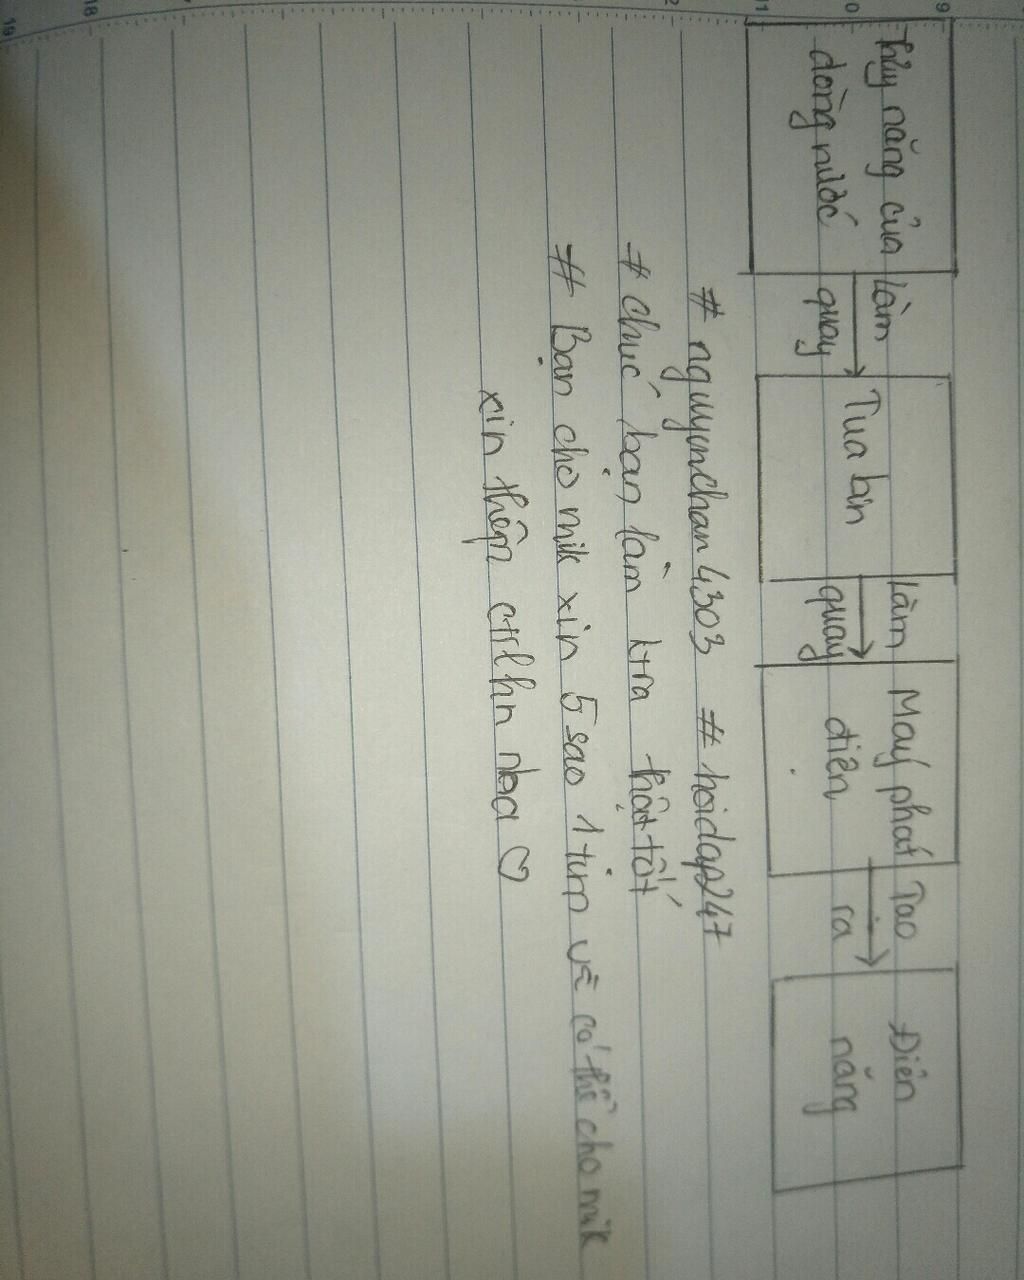 Thủy năng của dòng nước
Làm quay
Tua bin
Làm quay
Máy phát điện
Tạo ra
Điện năng
# nguyenchan4303 # hoidap247
# chúc bạn làm ktra thật tốt
# Bạn cho mik xin 5 sao 1 tim và có thể cho mik
xin thêm ctrlhn nha ♡
9
0
11
2
18
19